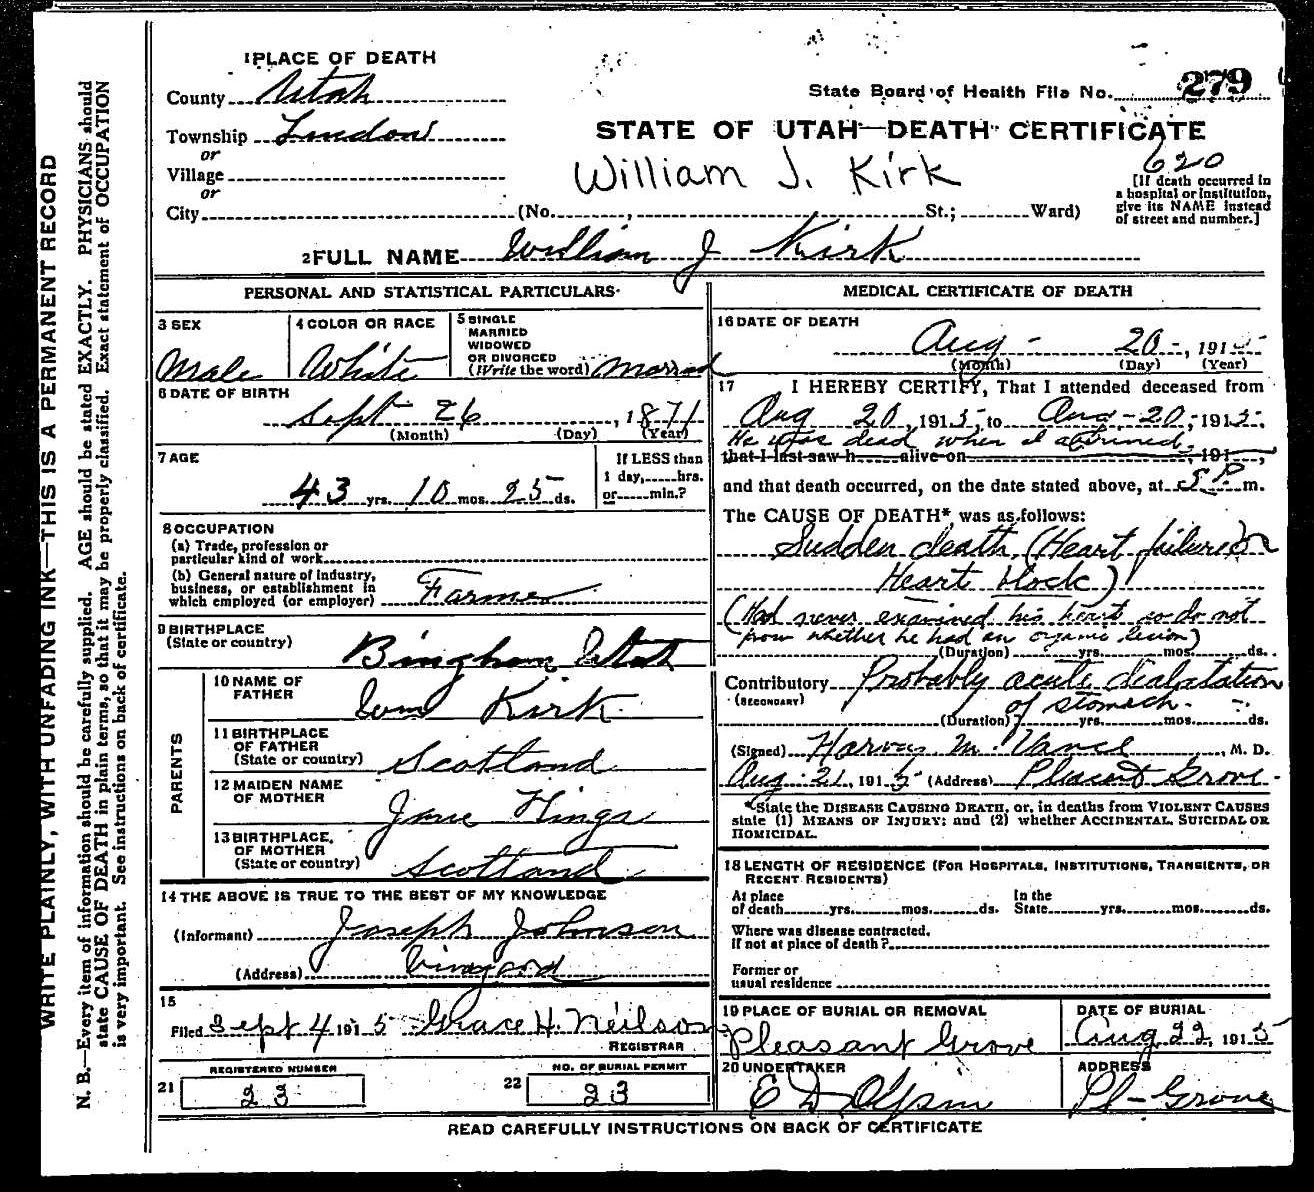 WRITE PLAINLY, WITH UNFADING INK—THIS IS A PERMANENT RECORD
N. B.—Every item of information should be carefully supplied. AGE should be stated EXACTLY. PHYSICIANS should
state CAUSE OF DEATH in plain terms, so that it may be properly classified. Exact statement of OCCUPATION
is very important. See instructions on back of certificate.
1 PLACE OF DEATH
County Utah
State Board of Health File No. 279
Township Lindon
STATE OF UTAH—DEATH CERTIFICATE
or
620
Village
William J. Kirk
[If death occurred in
a hospital or institution,
give its NAME instead
of street and number.]
or
City (No. , St.; Ward)
2 FULL NAME William J Kirk
PERSONAL AND STATISTICAL PARTICULARS
3 SEX
Male
4 COLOR OR RACE
White
5 SINGLE
MARRIED
WIDOWED
OR DIVORCED
(Write the word) Married
6 DATE OF BIRTH
Sept 26, 1871
(Month) (Day) (Year)
7 AGE
43 yrs. 10 mos. 25 ds.
If LESS than
1 day, hrs.
or min.?
8 OCCUPATION
(a) Trade, profession or
particular kind of work
(b) General nature of industry,
business, or establishment in
which employed (or employer) Farmer
9 BIRTHPLACE
(State or country) Bingham Utah
PARENTS
10 NAME OF
FATHER Wm Kirk
11 BIRTHPLACE
OF FATHER
(State or country) Scotland
12 MAIDEN NAME
OF MOTHER Jane
13 BIRTHPLACE
OF MOTHER
(State or country) Scotland
14 THE ABOVE IS TRUE TO THE BEST OF MY KNOWLEDGE
(Informant) Joseph Johnson
(Address) Vineyard
15
Filed Sept 4 1915 Grace H. Neilson
REGISTRAR
21 REGISTERED NUMBER
23
22 NO. OF BURIAL PERMIT
23
MEDICAL CERTIFICATE OF DEATH
16 DATE OF DEATH
Aug - 20 -, 1915
(Month) (Day) (Year)
17 I HEREBY CERTIFY, That I attended deceased from
Aug 20, 1915, to Aug - 20 -, 1915.
He was dead when I arrived.
that I last saw h alive on , 191 ,
and that death occurred, on the date stated above, at 5 P. m.
The CAUSE OF DEATH* was as follows:
Sudden death, (Heart failure or
Heart block)
(Had never examined his heart so do not
know whether he had an organic lesion)
(Duration) yrs. mos. ds.
Contributory Probably acute dialatation
(SECONDARY) of stomach.
(Duration) yrs. mos. ds.
(Signed) Harvey M. Vance, M. D.
Aug. 21, 1915 (Address) Pleasant Grove.
*State the DISEASE CAUSING DEATH, or, in deaths from VIOLENT CAUSES
state (1) MEANS OF INJURY; and (2) whether ACCIDENTAL, SUICIDAL OR
HOMICIDAL.
18 LENGTH OF RESIDENCE (FOR HOSPITALS, INSTITUTIONS, TRANSIENTS, OR
RECENT RESIDENTS)
At place
of death yrs. mos. ds.
In the
State yrs. mos. ds.
Where was disease contracted,
If not at place of death?
Former or
usual residence
19 PLACE OF BURIAL OR REMOVAL
Pleasant Grove
DATE OF BURIAL
Aug 22, 1915
20 UNDERTAKER
E D Olpin
ADDRESS
Pl - Grove
READ CAREFULLY INSTRUCTIONS ON BACK OF CERTIFICATE